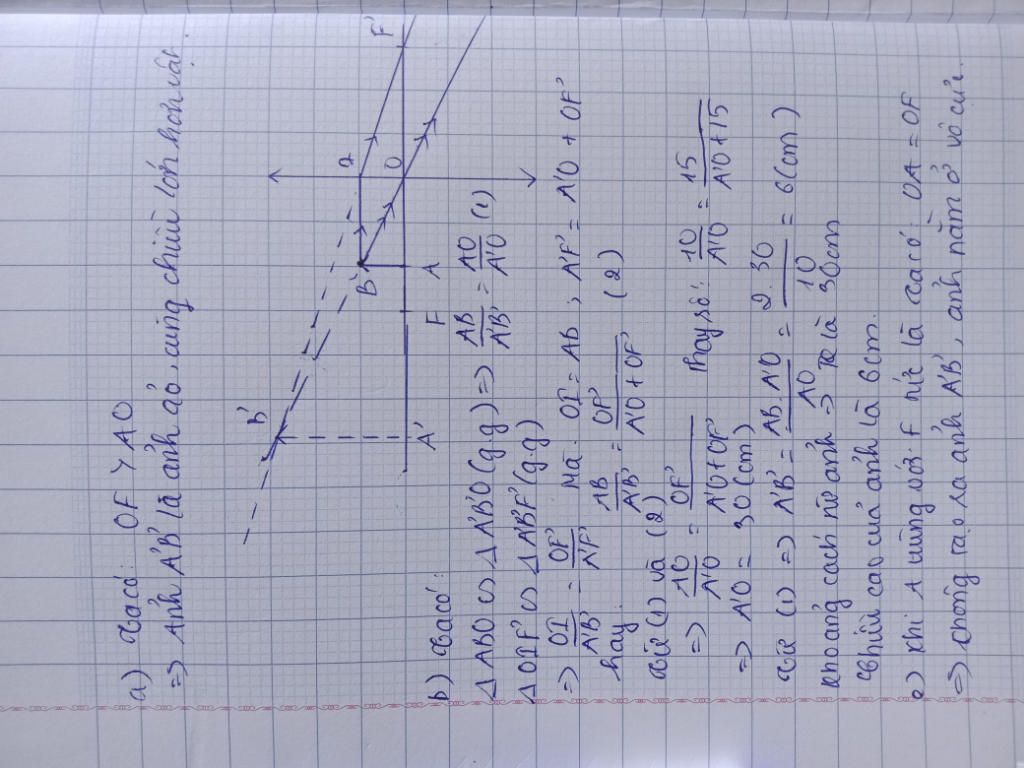 a) Ta có: OF > AO
=> Ảnh A'B' là ảnh ảo, cùng chiều lớn hơn vật.
B'
B
I
A'
F
A
O
F'
b) Ta có:
Δ ABO ∽ Δ A'B'O (g.g) => AB/A'B' = AO/A'O (1)
Δ OIF' ∽ Δ A'B'F' (g.g)
=> OI/A'B' = OF'/A'F' Mà: OI = AB ; A'F' = A'O + OF'
hay: AB/A'B' = OF'/A'O + OF' (2)
Từ (1) và (2)
=> AO/A'O = OF'/A'O + OF' Thay số: 10/A'O = 15/A'O + 15
=> A'O = 30 (cm)
Từ (1) => A'B' = AB. A'O/AO = 2. 30/10 = 6 (cm)
Khoảng cách nè ảnh => TK là 30cm
Chiều cao của ảnh là 6cm.
c) Khi A trùng với F tức là ta có: OA = OF
=> Không tạo ra ảnh A'B', ảnh nằm ở vô cực.